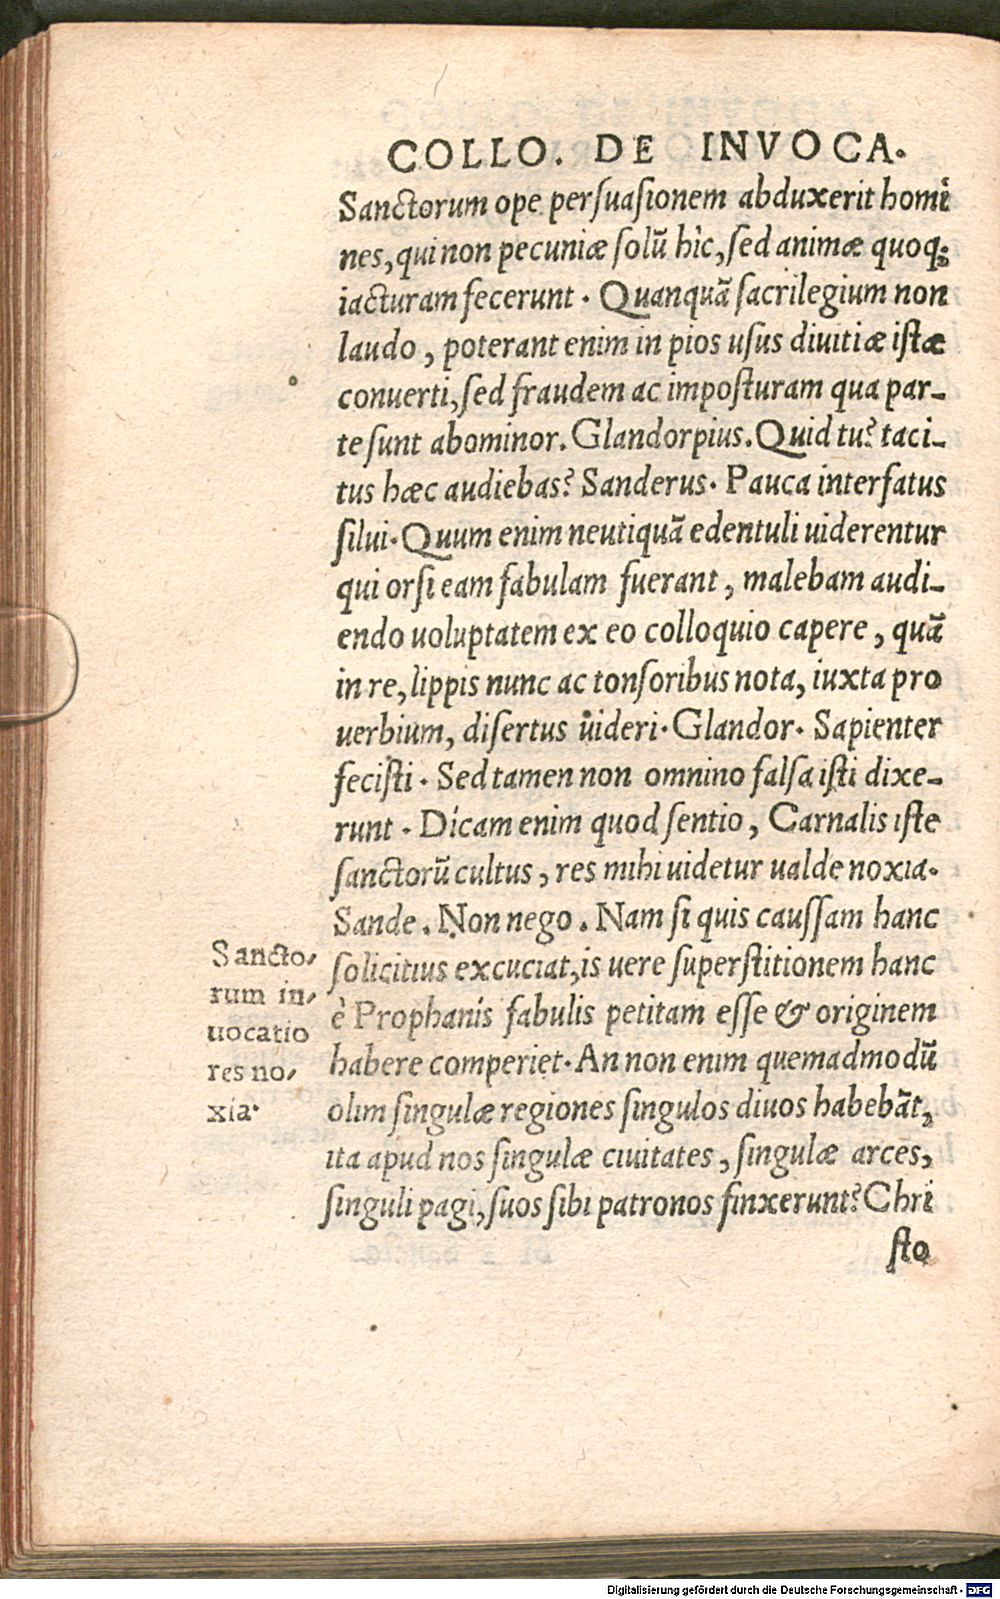 COLLO. DE INVOCA.
Sanctorum ope persuasionem abduxerit homĩ
nes, qui non pecuniæ solũ hìc, sed animæ quoq;
iacturam fecerunt. Quanquã sacrilegium non
laudo, poterant enim in pios usus diuitiæ istæ
conuerti, sed fraudem ac imposturam qua par-
te sunt abominor. Glandorpius. Quid tu? taci-
tus hæc audiebas? Sanderus. Pauca interfatus
silui. Quum enim neutiquã edentuli uiderentur
qui orsi eam fabulam fuerant, malebam audi-
endo uoluptatem ex eo colloquio capere, quã
in re, lippis nunc ac tonsoribus nota, iuxta pro
uerbium, disertus uideri. Glandor. Sapienter
fecisti. Sed tamen non omnino falsa isti dixe-
runt. Dicam enim quod sentio, Carnalis iste
sanctorũ cultus, res mihi uidetur ualde noxia.
Sande. Non nego. Nam si quis caussam hanc
solicitius excuciat, is uere superstitionem hanc
è Prophanis fabulis petitam esse & originem
habere comperiet. An non enim quemadmodũ
olim singulæ regiones singulos diuos habebãt,
ita apud nos singulæ ciuitates, singulæ arces,
singuli pagi, suos sibi patronos finxerunt? Chri
sto
Sancto-
rum in-
uocatio
res no-
xia.
Digitalisierung gefördert durch die Deutsche Forschungsgemeinschaft - DFG